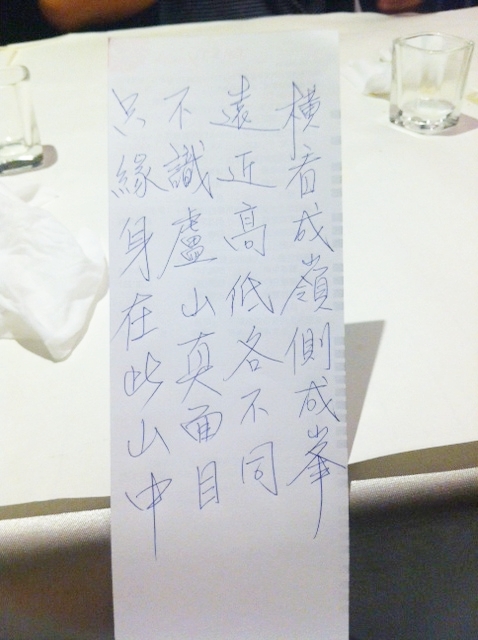 橫看成嶺側成峯
遠近高低各不同
不識盧山真面目
只緣身在此山中